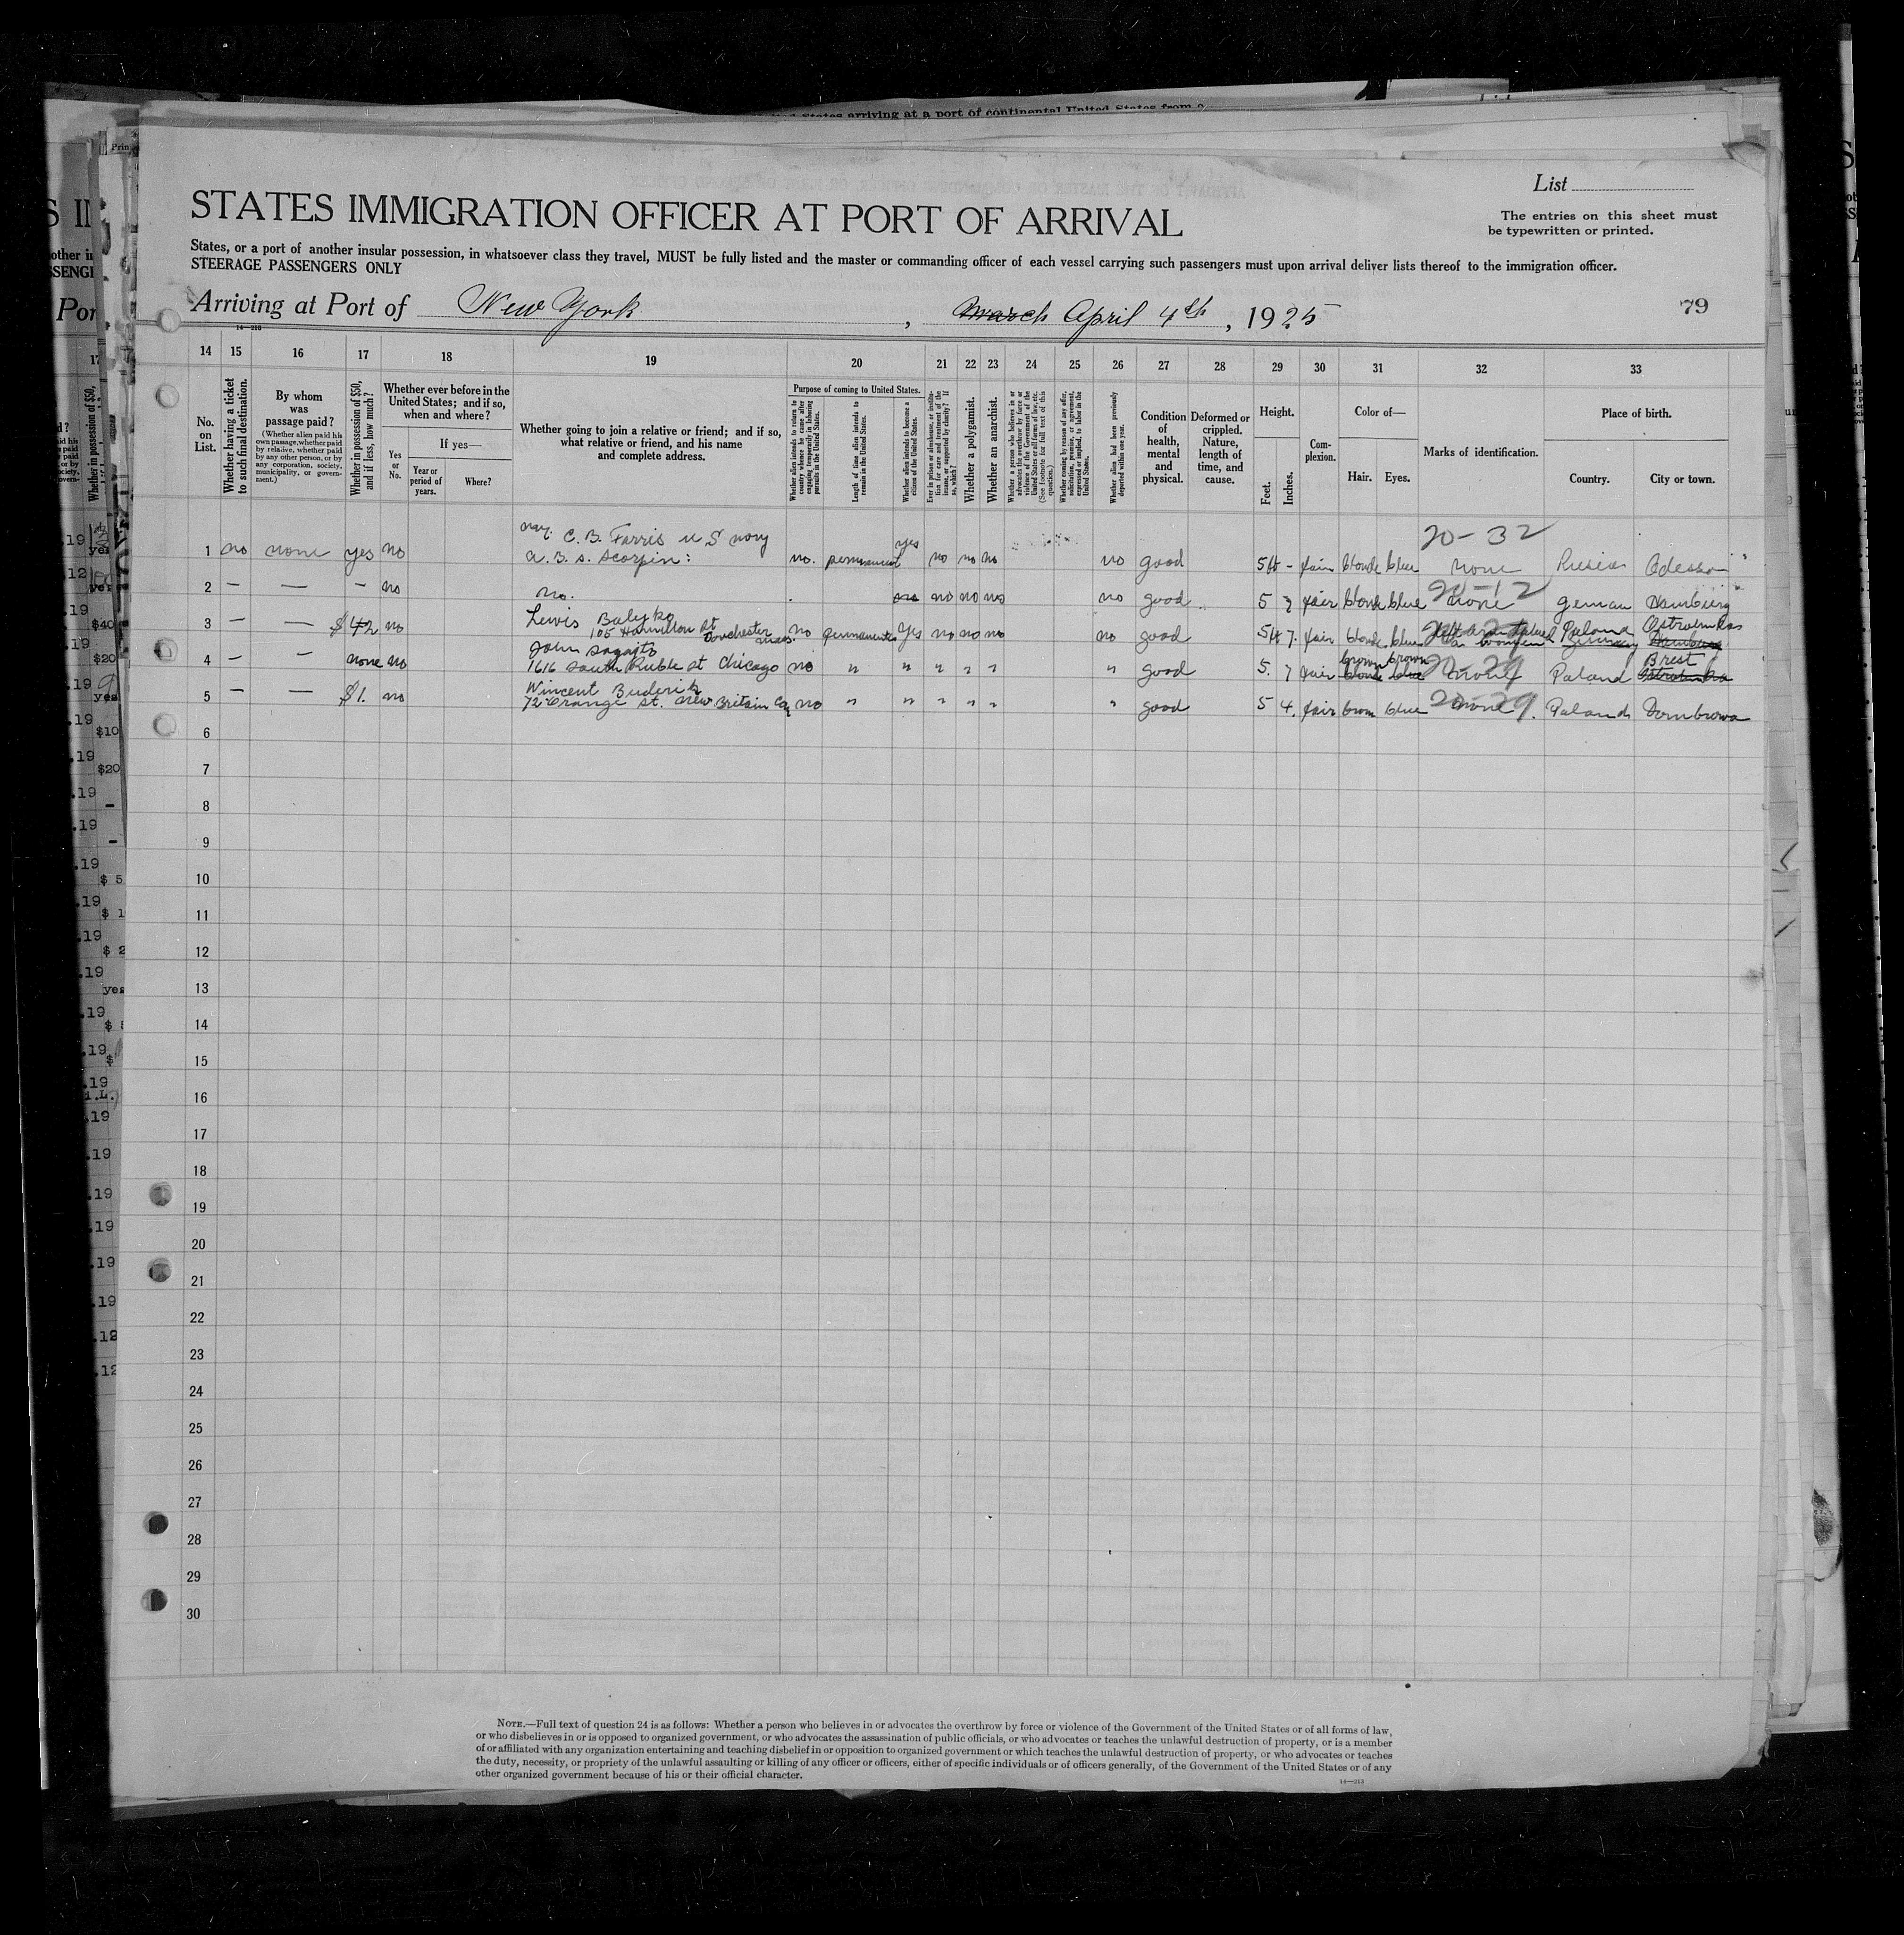 List
STATES IMMIGRATION OFFICER AT PORT OF ARRIVAL
The entries on this sheet must
be typewritten or printed.
States, or a port of another insular possession, in whatsoever class they travel, MUST be fully listed and the master or commanding officer of each vessel carrying such passengers must upon arrival deliver lists thereof to the immigration officer.
STEERAGE PASSENGERS ONLY
Arriving at Port of New York, March April 4th, 1925
79
14 15 16 17 18 19 20 21 22 23 24 25 26 27 28 29 30 31 32 33
No. on List.
Whether having a ticket to such final destination.
By whom was passage paid?
(Whether alien paid his own passage, whether paid by relative, whether paid by any other person, or by any corporation, society, municipality, or government.)
Whether in possession of $50, and if less, how much?
Whether ever before in the United States; and if so, when and where?
Yes or No.
If yes—
Year or period of years.
Where?
Whether going to join a relative or friend; and if so, what relative or friend, and his name and complete address.
Purpose of coming to United States.
Whether alien intends to return to country whence he came after engaging temporarily in laboring pursuits in the United States.
Length of time alien intends to remain in the United States.
Whether alien intends to become a citizen of the United States.
Ever in prison or almshouse, or institution for care and treatment of the insane, or supported by charity? If so, which?
Whether a polygamist.
Whether an anarchist.
Whether a person who believes in or advocates the overthrow by force or violence of the Government of the United States or all forms of law, etc. (See footnote for full text of this question.)
Whether coming by reason of any offer, solicitation, promise, or agreement, expressed or implied, to labor in the United States.
Whether alien had been previously deported within one year.
Condition of health, mental and physical.
Deformed or crippled. Nature, length of time, and cause.
Height.
Feet. Inches.
Complexion.
Color of—
Hair. Eyes.
Marks of identification.
Place of birth.
Country. City or town.
20-32
C. B. Farris U S navy
1 no none yes no a. B. S. Scorpin: no. permanent yes no no no no good 5 ft - fair blonde blue none Russia Odessa
20-12
2 — — - no no. no no no no no good 5 7 fair blonde blue none German Hamburg
Lewis Balyko
3 — — $42 no 105 Hamilton St Dorchester mass. no permanent yes no no no no good 5 ft 7. fair blonde blue Poland Germany Hamburg
John
brown brown Brest
4 - - none no 1616 South Ruble st Chicago no " " " " " " good 5. 7 fair blonde blue 20-29 none Poland
Wincent Buderik
5 — — $1. no 72 Orange St. New Britain no " " " " " " good 5 4. fair brown blue 20-29 none. Poland Dombrowa
6
7
8
9
10
11
12
13
14
15
16
17
18
19
20
21
22
23
24
25
26
27
28
29
30
NOTE.—Full text of question 24 is as follows: Whether a person who believes in or advocates the overthrow by force or violence of the Government of the United States or of all forms of law,
or who disbelieves in or is opposed to organized government, or who advocates the assassination of public officials, or who advocates or teaches the unlawful destruction of property, or is a member
of or affiliated with any organization entertaining and teaching disbelief in or opposition to organized government or which teaches the unlawful destruction of property, or who advocates or teaches
the duty, necessity, or propriety of the unlawful assaulting or killing of any officer or officers, either of specific individuals or of officers generally, of the Government of the United States or of any
other organized government because of his or their official character.
14—213